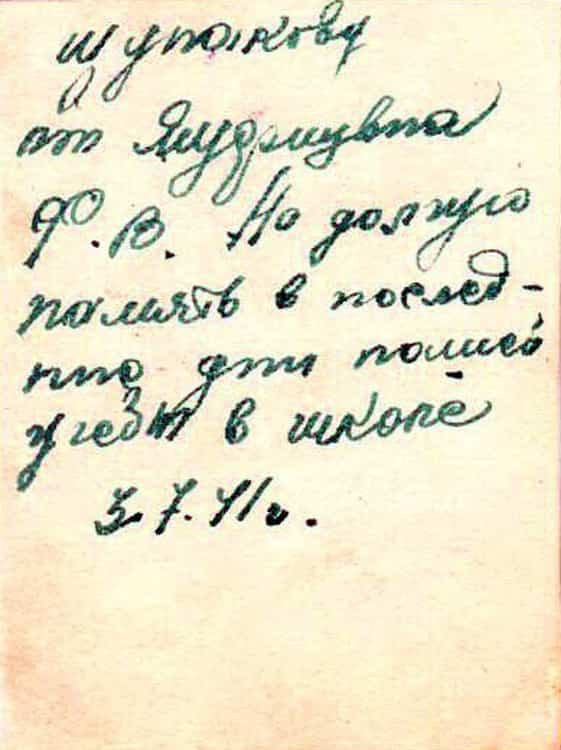 Шупакову
от Ямудрицвта
Ф. В. На долгую
память в послед-
ние дни нашей
учебы в школе
3.7.41г.